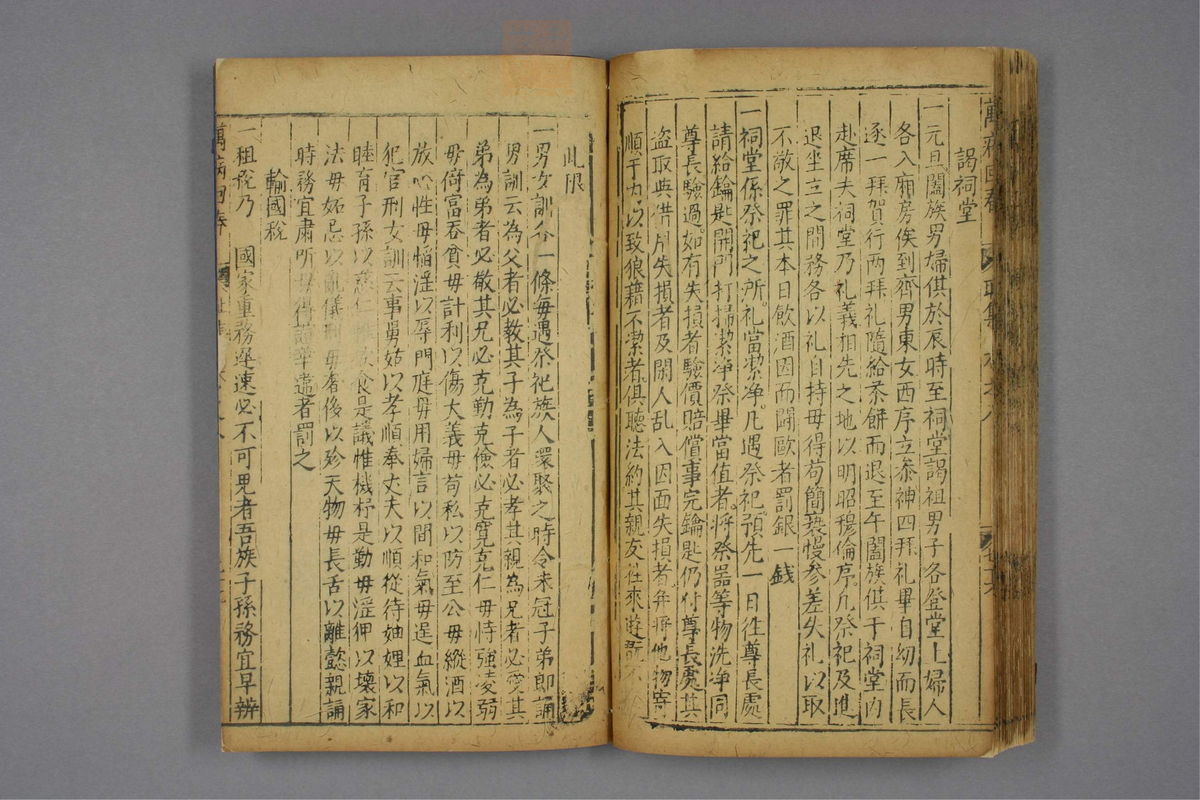 謁祠堂
一元旦闔族男婦俱於辰時至祠堂謁祖男子各登堂上婦人
各入廂房俟到齊男東女西序立參神四拜礼畢自幼而長
逐一拜賀行两拜礼隨給茶餅而退至午闔族俱于祠堂內
赴席夫祠堂乃礼義相先之地以明昭穆倫序凡祭祀及進
退坐立之間務各以礼自持毋得苟簡褻慢参差失礼以取
不敬之罪其本日飲酒因而鬪歐者罰銀一錢
一祠堂係祭祀之所礼當潔凈凡遇祭祀預先一日往尊長處
請給鑰匙開門打掃潔淨祭畢當值者将祭噐等物洗淨同
尊長驗過如有失損者驗價賠償事完鑰匙仍付尊長處其
盗取與借用失損者及閑人乱入因而失損者并將他物寄
順于內以致狼藉不潔者俱聽法約其親友往來遊
此限
一男女訓各一條每遇祭祀族人還聚之時令未冠子弟即誦
男訓云為父者必教其子為子者必孝其親為兄者必愛其
弟為弟者必敬其兄必克勤克儉必克寬克仁毋恃強凌弱
毋倚富吞貧毋計利以傷大義毋苟私以防至公毋縱酒以
放心性毋慆淫以辱門庭毋用婦言以間和氣毋逞血氣以
犯官刑女訓云事舅姑以孝順奉丈夫以順從待妯娌以和
睦育子孫以慈仁食是議惟機杼是勤毋淫狎以壞家
法毋妬忌以亂儀刑毋奢侈以殄天物毋長舌以離懿親誦
時務宜肅所毋得諠譁違者罰之
輸國稅
一租稅乃 國家重務遲速必不可免者吾族子孫務宜早辨